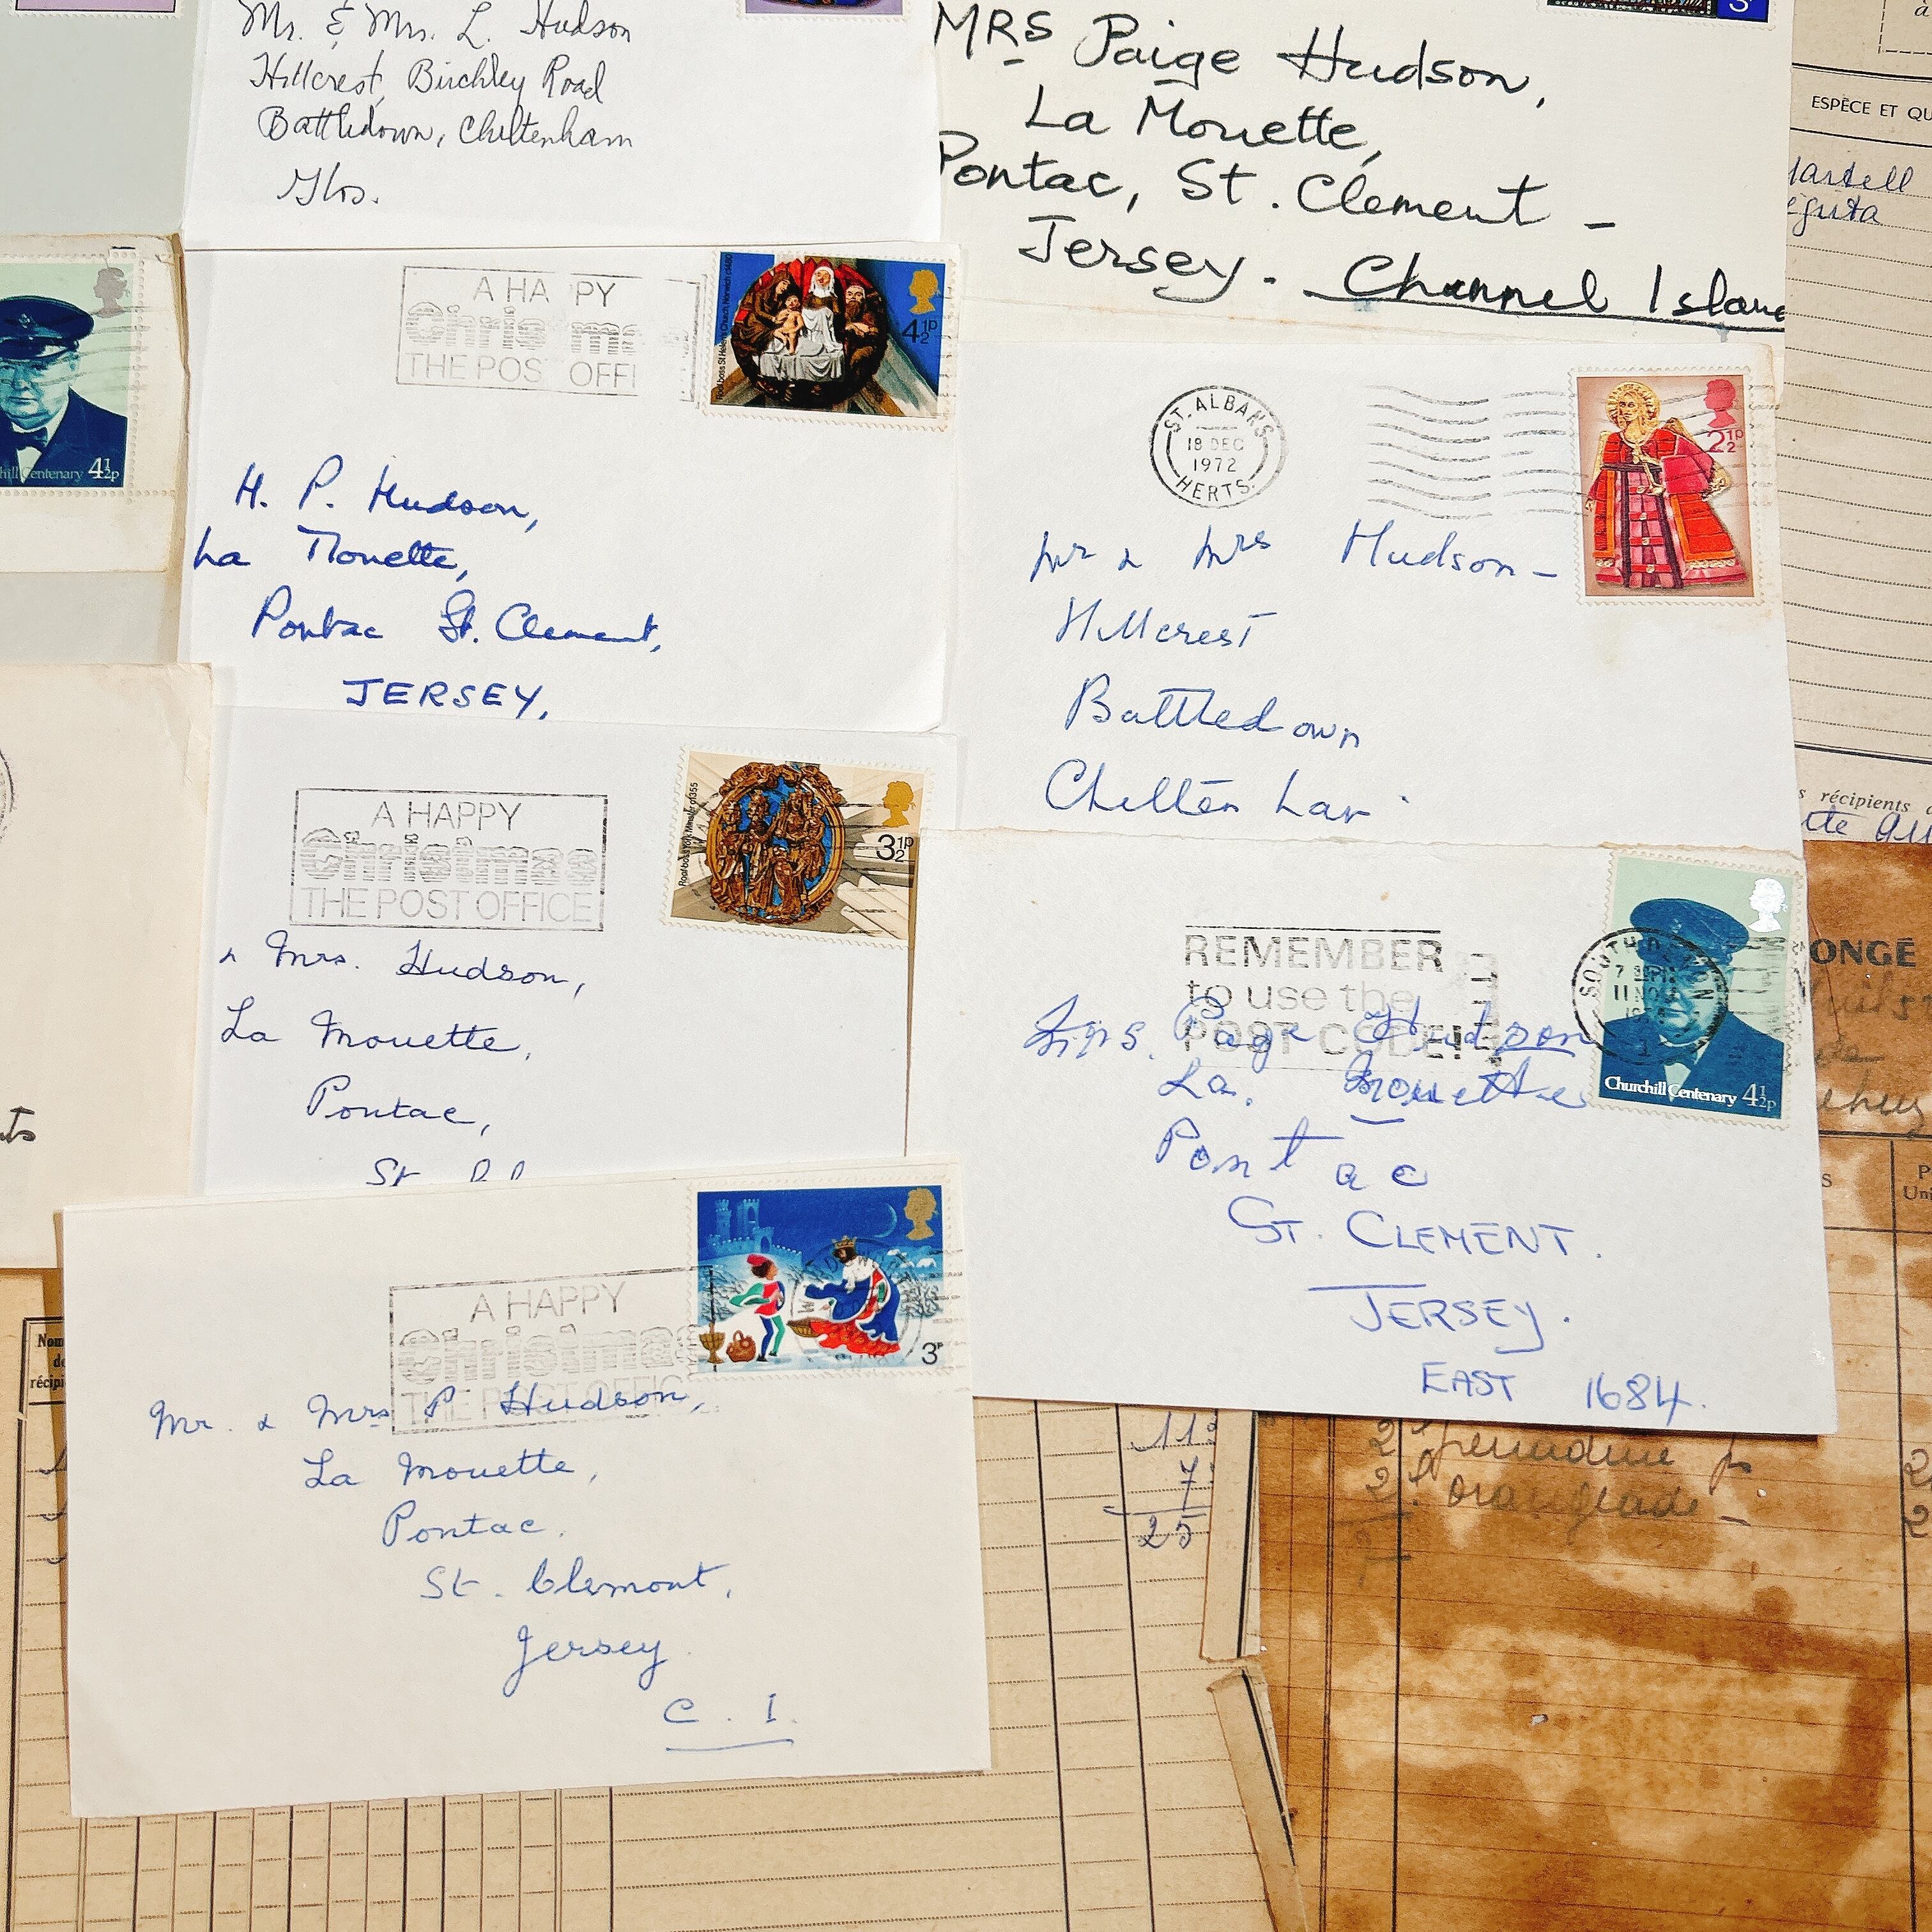 Mr. & Mrs. L. Hudson
Hillcrest, Birchley Road
Battledown, Cheltenham
Glos.
MRS Paige Hudson,
La Mouette,
Pontac, St. Clement -
Jersey. Channel Island
ESPÈCE ET QU
hill Centenary 4½p
A HAPPY
Christmas
THE POST OFFI
4½p
H. P. Hudson,
La Mouette,
Pontac St. Clement,
JERSEY,
ST. ALBANS
18 DEC
1972
HERTS.
2½p
Mr & Mrs Hudson-
Hillcrest
Battledown
A HAPPY
Christmas
THE POST OFFICE
3½p
& Mrs. Hudson,
La Mouette,
Pontac,
St
s récipients
REMEMBER
to use the
POST CODE!
SOUTH DEVON
Churchill Centenary 4½p
Mrs. Page Hudson
La. Mouette
Pontac
ST. CLEMENT.
JERSEY.
EAST 1684.
ONGÉ
A HAPPY
Christmas
THE POST OFFICE
3p
Mr. & Mrs P. Hudson,
La Mouette,
Pontac.
St. Clemont,
Jersey
C. I.
Nom
de
récipi
P
Uni
7
25
2
2 orangeade -